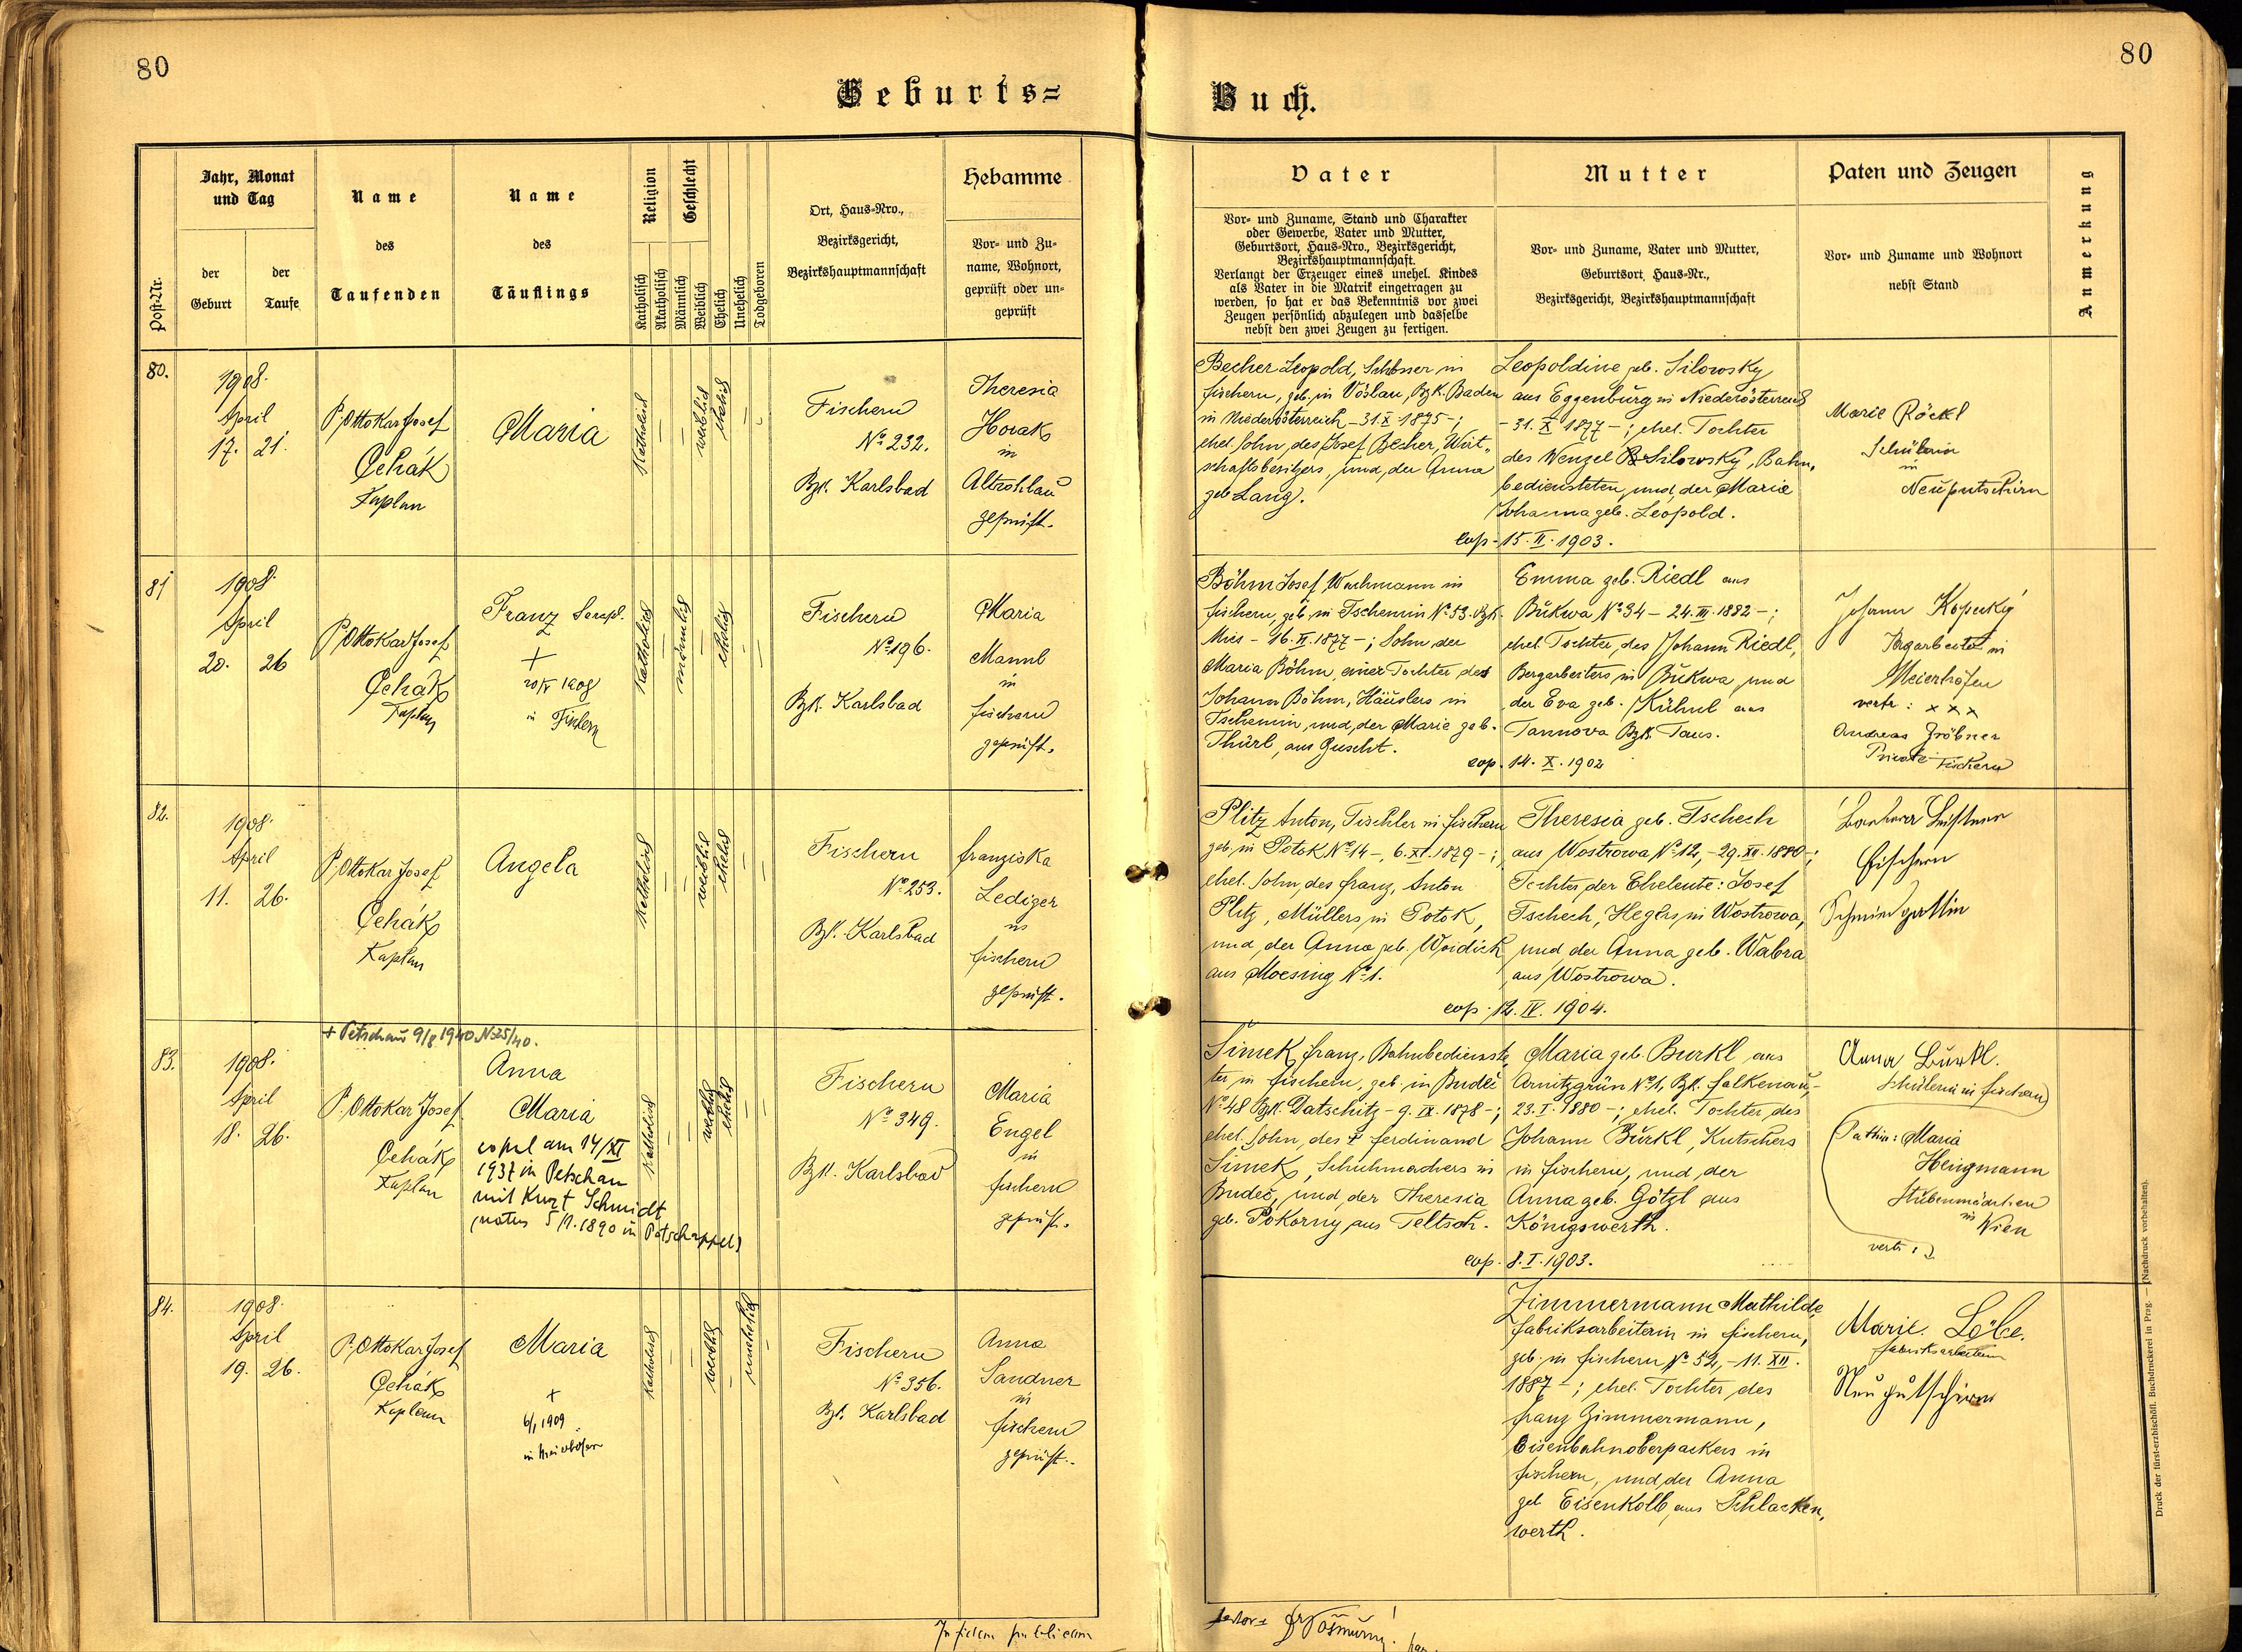 80
80
Geburts=
Buch.
Post-Nr.
Jahr, Monat
und Tag
der
Geburt
der
Taufe
Name
des
Taufenden
Name
des
Täuflings
Religion
Katholisch
Akatholisch
Geschlecht
Männlich
Weiblich
Ehelich
Unehelich
Todgeboren
Ort, Haus=Nro.,
Bezirksgericht,
Bezirkshauptmannschaft
Hebamme
Vor= und Zu=
name, Wohnort,
geprüft oder un=
geprüft
Vater
Vor= und Zuname, Stand und Charakter
oder Gewerbe, Vater und Mutter,
Geburtsort, Haus=Nro., Bezirksgericht,
Bezirkshauptmannschaft.
Verlangt der Erzeuger eines unehel. Kindes
als Vater in die Matrik eingetragen zu
werden, so hat er das Bekenntnis vor zwei
Zeugen persönlich abzulegen und dasselbe
nebst den zwei Zeugen zu fertigen.
Mutter
Vor= und Zuname, Vater und Mutter,
Geburtsort, Haus=Nr.,
Bezirksgericht, Bezirkshauptmannschaft
Paten und Zeugen
Vor= und Zuname und Wohnort
nebst Stand
Anmerkung
80.
1908.
April
17. 21.
P. Ottokar Josef
Čehák
Kaplan
Maria
Katholisch
weiblich
ehelich
Fischern
No 232.
Bzk. Karlsbad
Theresia
Horak
in
Altrohlau
geprüft.
Becher Leopold, Schlosser in
Fischern, geb. in Vöslau, Bzk. Baden
in Niederösterreich - 31.X.1875 -;
ehel. Sohn, des Josef Becher, Wirt=
schaftsbesitzers, und, der Anna
geb. Lang.
Leopoldine geb. Silowsky
aus Eggenburg in Niederösterreich
- 31. X 1877 -; ehel. Tochter
des Wenzel Silowsky, Bahn=
bediensteten, und, der Marie
Johanna geb. Leopold.
cop. 15. II. 1903.
Marie Röckl
Schülerin
in
Neuputschirn
81
1908.
April
20. 26
P. Ottokar Josef
Čehák
Kaplan
Franz Seraph.
+
20/V 1908
in Fischern
Katholisch
männlich
ehelich
Fischern
No 196.
Bzk. Karlsbad
Maria
Mannl
in
Fischern
geprüft.
Böhm Josef, Wachmann in
Fischern, geb. in Tschemin No 53. Bzk.
Mies - 16. II. 1877 -; Sohn, der
Maria Böhm, einer Tochter des
Johann Böhm, Häuslers in
Tschemin, und, der Marie geb.
Thürl, aus Guscht.
Emma geb. Riedl aus
Bukwa No 34 - 24. III. 1882 -;
ehel. Tochter, des Johann Riedl,
Bergarbeiters in Bukwa, und
der Eva geb. Kühnl aus
Tannova Bzk. Taus.
cop. 14. X. 1902
Johann Kopecký
Tagarbeiter in
Meierhöfen
vertr: x x x
Andreas Gröbner
Private Fischern
82.
1908.
April
11. 26.
P. Ottokar Josef
Čehák
Kaplan
Angela
Katholisch
weiblich
ehelich
Fischern
No 253.
Bzk. Karlsbad
Franziska
Lediger
in
Fischern
geprüft.
Plitz Anton, Tischler in Fischern
geb. in Potok No 14 -, 6. XI. 1879 -;
ehel. Sohn, des Franz, Anton
Plitz, Müllers in Potok,
und, der Anna geb. Woidich
aus Moesing No 1.
Theresia geb. Tschech
aus Wostrowa No 12, - 29. XII. 1880 -;
Tochter, der Eheleute: Josef
Tschech, Hegers, in Wostrowa,
und, der Anna geb. Wabra
aus Wostrowa.
cop. 12. IV. 1904.
Barbara Leistner
Fischern
Schmiedgattin
83.
+ Petschau 9/8 1940 N=25/40.
1908.
April
18. 26.
P. Ottokar Josef
Čehák
Kaplan
Anna
Maria
copul am 14/XI
1937 in Petschau
mit Kurt Schmidt
(natus 5/1. 1890 in Potschappel)
Katholisch
weiblich
ehelich
Fischern
No 349.
Bzk. Karlsbad
Maria
Engel
in
Fischern
geprüft.
Šimek, Franz, Bahnbedienste=
ter, in Fischern, geb. in Budeč
No 48 Bzk. Datschitz - 9. IX. 1878 -;
ehel. Sohn, des Ferdinand
Šimek, Schuhmachers in
Budeč, und, der Theresia
geb. Pokorny, aus Teltsch.
Maria geb. Burkl aus
Arnitzgrün No 1, Bzk. Falkenau, -
23. I. 1880 -; ehel. Tochter, des
Johann Burkl, Kutschers
in Fischern, und, der
Anna geb. Götzl aus
Königswerth.
cop. 8. I. 1903.
Anna Burkl.
Schülerin in Fischern
Pathin: Maria
Heigmann
Stubenmädchen
in Wien
vertr:
84.
1908.
April
19. 26.
P. Ottokar Josef
Čehák
Kaplan
Maria
+
6/1 1909
in Meierhöfen
Katholisch
weiblich
unehelich
Fischern
No 356.
Bzk. Karlsbad
Anna
Sandner
in
Fischern
geprüft.
Zimmermann Mathilde,
Fabriksarbeiterin in Fischern,
geb. in Fischern No 52, - 11. XII.
1887 -; ehel. Tochter des
Franz Zimmermann,
Eisenbahnoberpackers in
Fischern, und, der Anna
geb. Eisenkolb, aus Schlacken=
werth.
Marie. Löbe.
Fabriksarbeiterin
In fidem publicam
Druck der fürst-erzbischöfl. Buchdruckerei in Prag. — (Nachdruck vorbehalten).